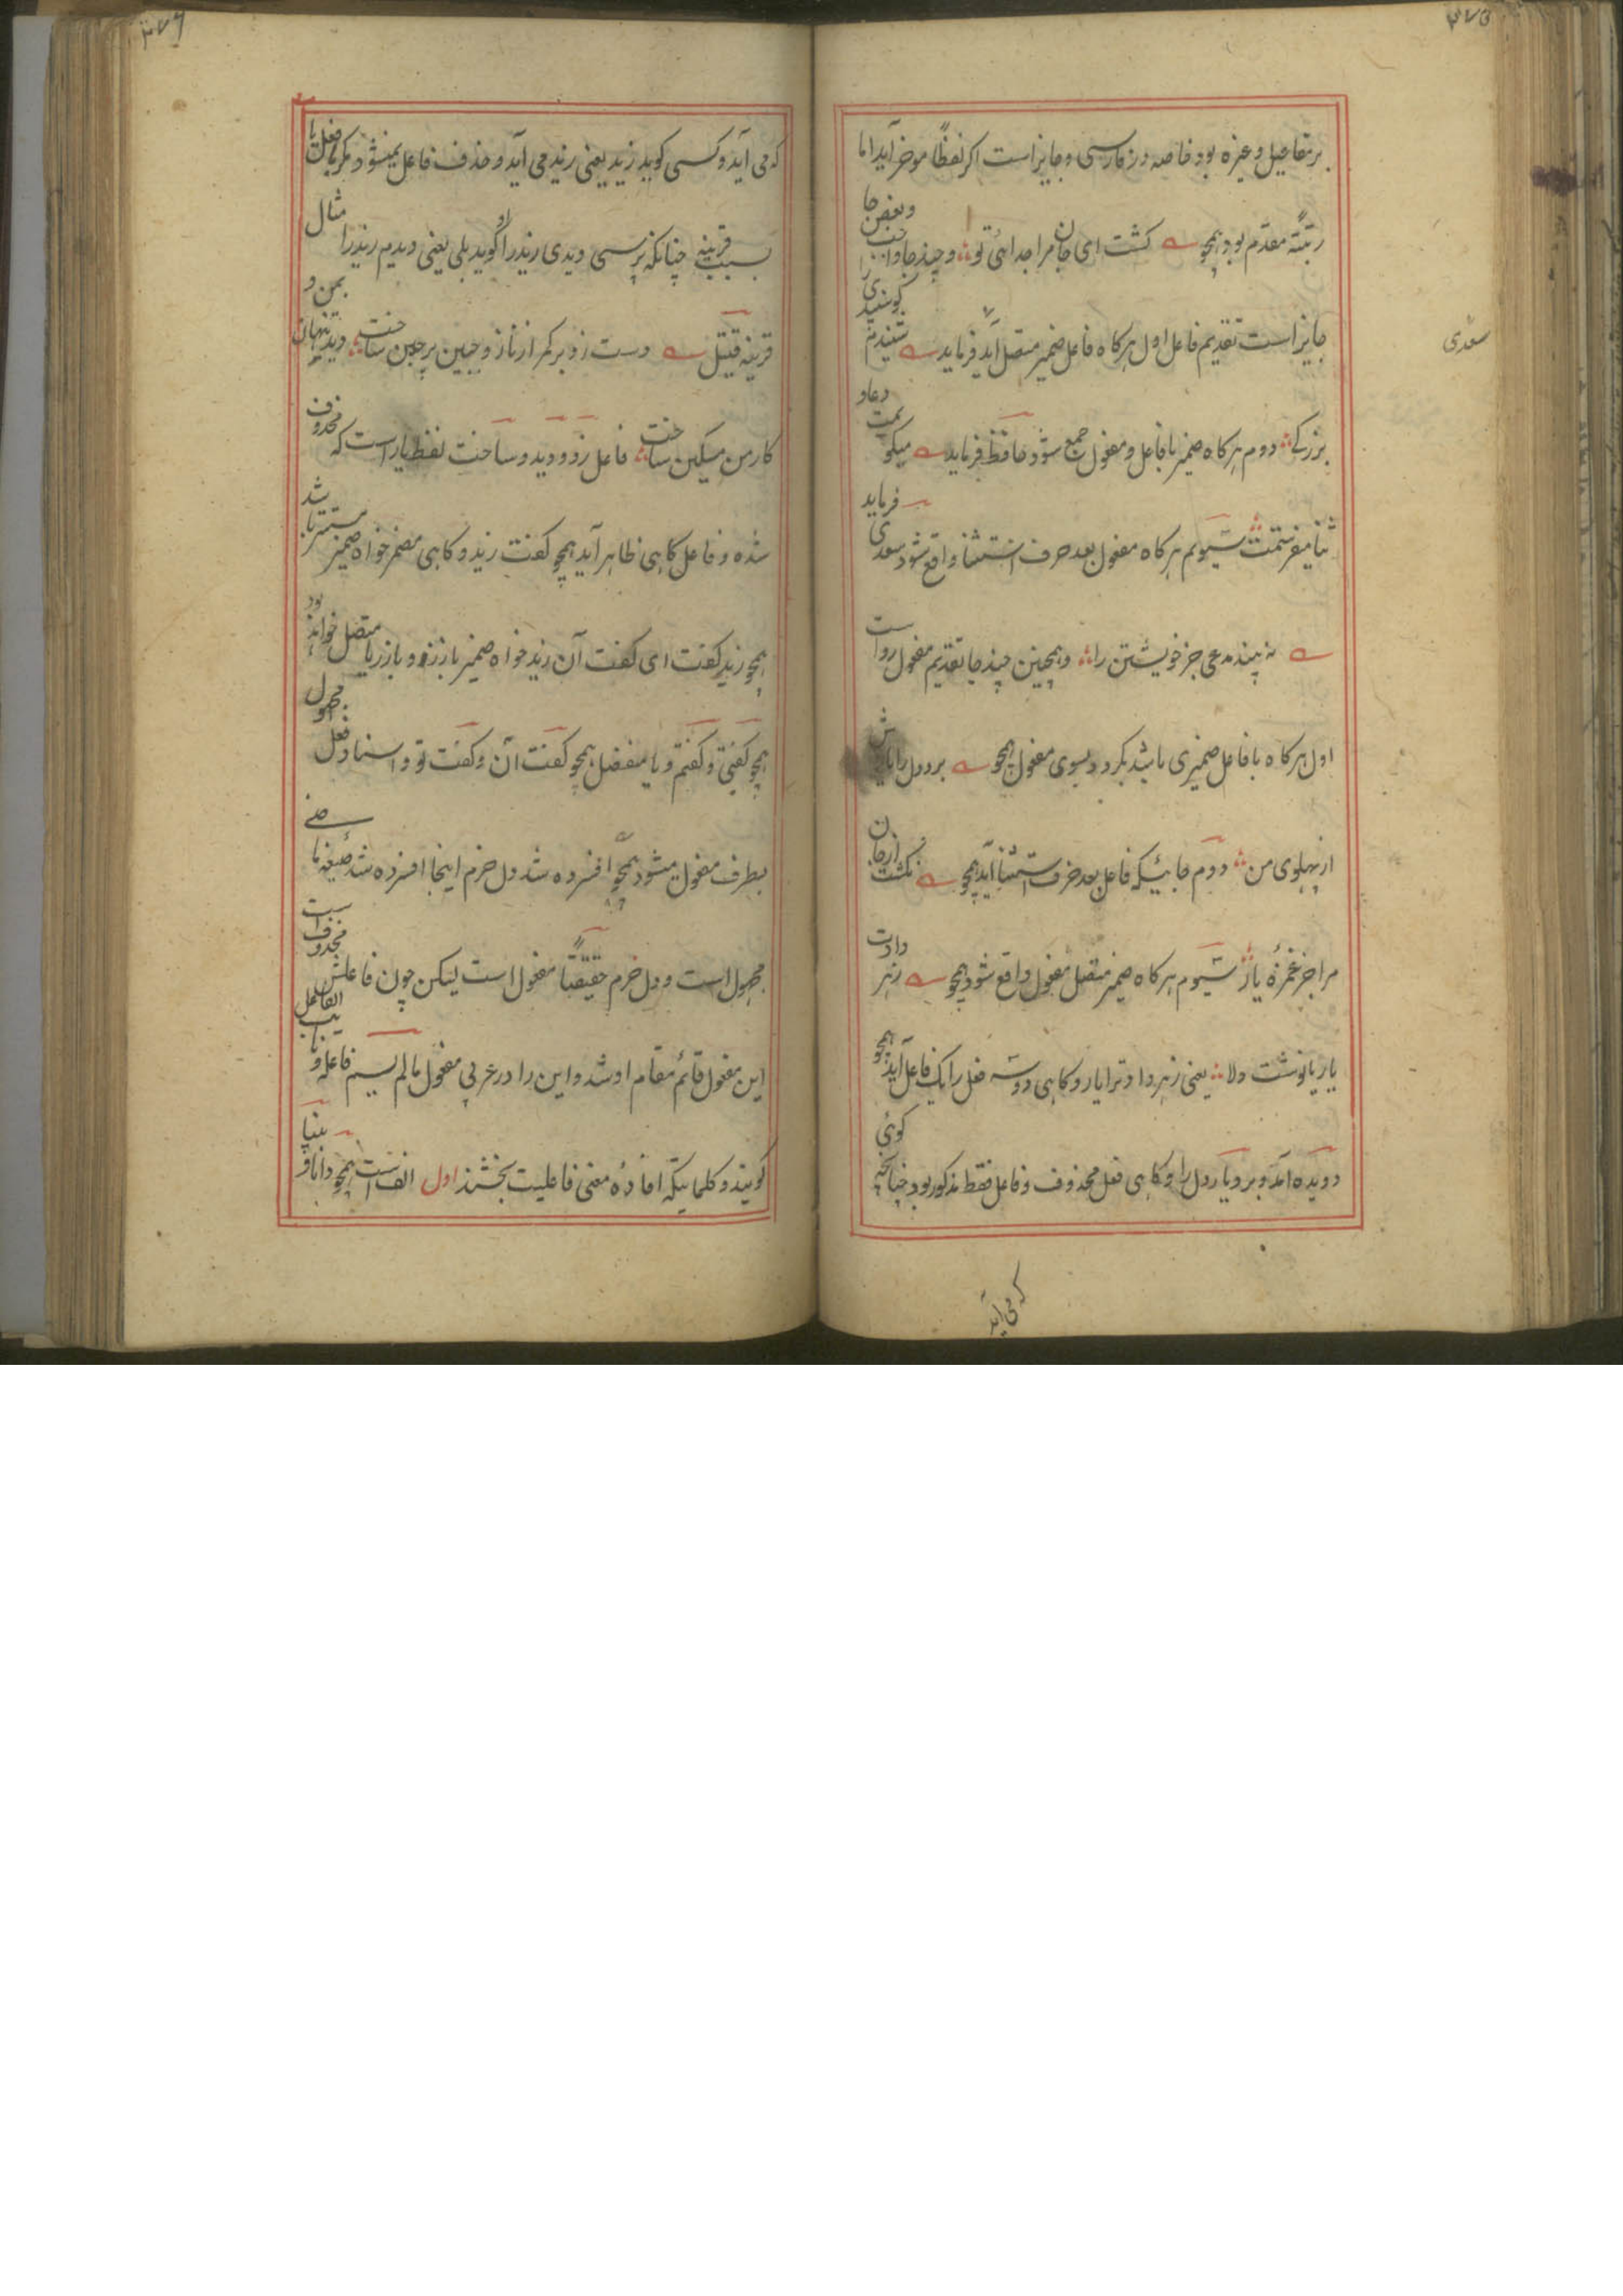 ۳۷۵
بر تفاعیل و غیره بود خاصه در فارسی و جایز است اکر لفظاً موخر آید اما
رتبتهً مقدم بود همچو کشت ای جان مرا جدائی تو و چند جا واجب و بعض جا
جایز است تقدیم فاعل اول هر کاه فاعل ضمیر متصل آید فرماید شنیدم کوسفندی
سعدی
بزرکے دوم هر کاه ضمیر با فاعل و مفعول جمع شود حافظ فرماید میکویمت دعا و
ثنا میفرستمت سیوم هر کاه مفعول بعد حرف استثنا واقع شود سعدی فرماید
نه بیند مدعی جز خویشتن را و همچنین چند جا تقدیم مفعول رواست
اول هر کاه با فاعل ضمیری باشد بکردد بسوی مفعول همچو برد دل را یارش
از پهلوی من دوم جائیکه فاعل بعد حرف استثنا آید همچو نکشت از جان
مرا جز غمزهٔ یار سیوم هر کاه ضمیر متصل مفعول واقع شود همچو زهر دادت
یار یا نوشت دلا یعنی زهر داد ترا یار و کاهی دو سه فعل را یک فاعل آید همچو
دویده آمد و برد یار دل را و کاهی فعل محذوف و فاعل فقط مذکور بود چنانکه کوئی
که می آید
۳۷۶
که می آید و کسی کوید زید یعنی زید می آید و حذف فاعل نمیشود مکر با فعل یا
بسبب قرینه چنانکه پرسی دیدی زید را او کوید بلی یعنی دیدم زید را مثال
قرینه قتیل دست زد بر کمر از ناز و جبین پر چین ساخت دید تنها بمن و
کار من مسکین ساخت فاعل زد و دید و ساخت لفظ یار است که محذوف
شده و فاعل کاهی ظاهر آید همچو کفت زید و کاهی مضمر خواه ضمیر مستتر باشد
همچو زید کفت ای کفت آن زید خواه ضمیر بارز و بارز یا متصل خواهد بود
همچو کفتی و کفتم و یا منفصل همچو کفت آن و کفت تو و اسناد فعل مجهول
بطرف مفعول میشود همچو افسرده شد دل خرم اینجا افسرده شد صیغهٔ ماضے
مجهول است و دل خرم حقیقتاً مفعول است لیکن چون فاعلش محذوف است
این مفعول قائم مقام او شد و این را در عربی مفعول مالم یسم فاعله و نایب الفاعل
کویند و کلماتیکه افادهٔ معنی فاعلیت بخشند اول الف است همچو دانا و بینا